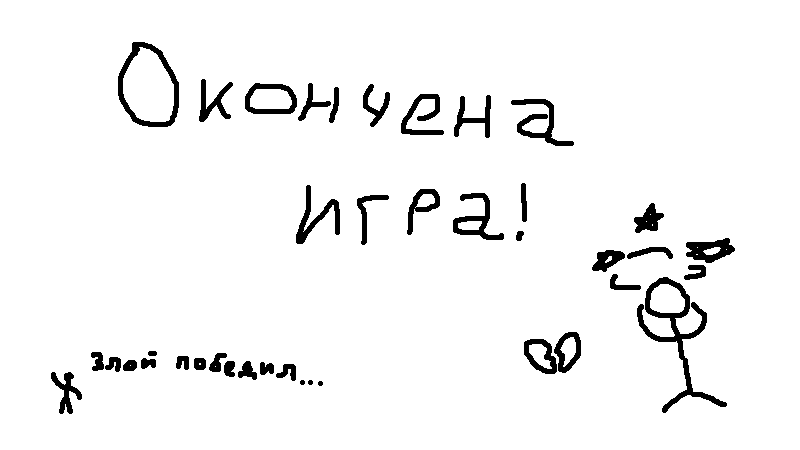 Окончена
игра!
Злой победил...